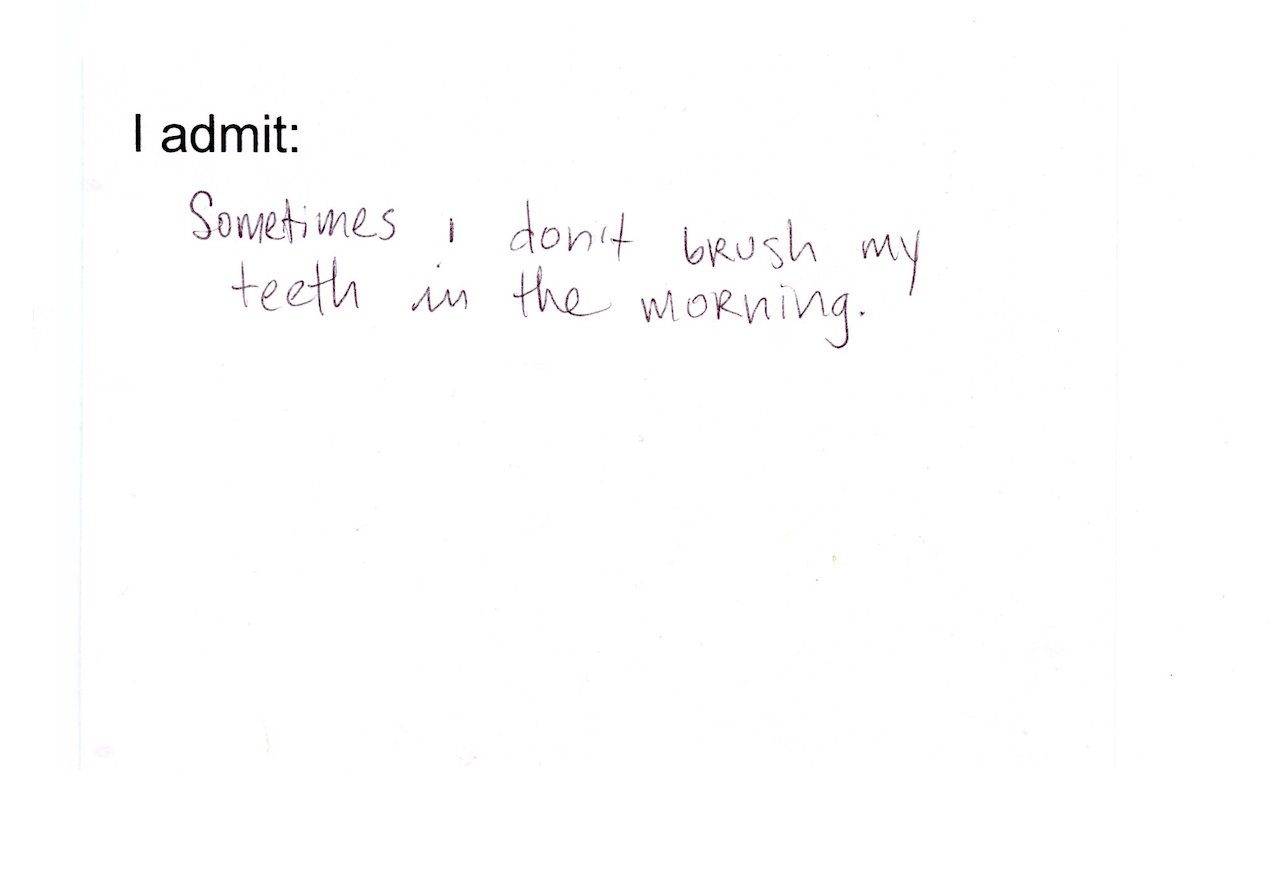 I admit:
Sometimes i don't brush my
teeth in the morning.